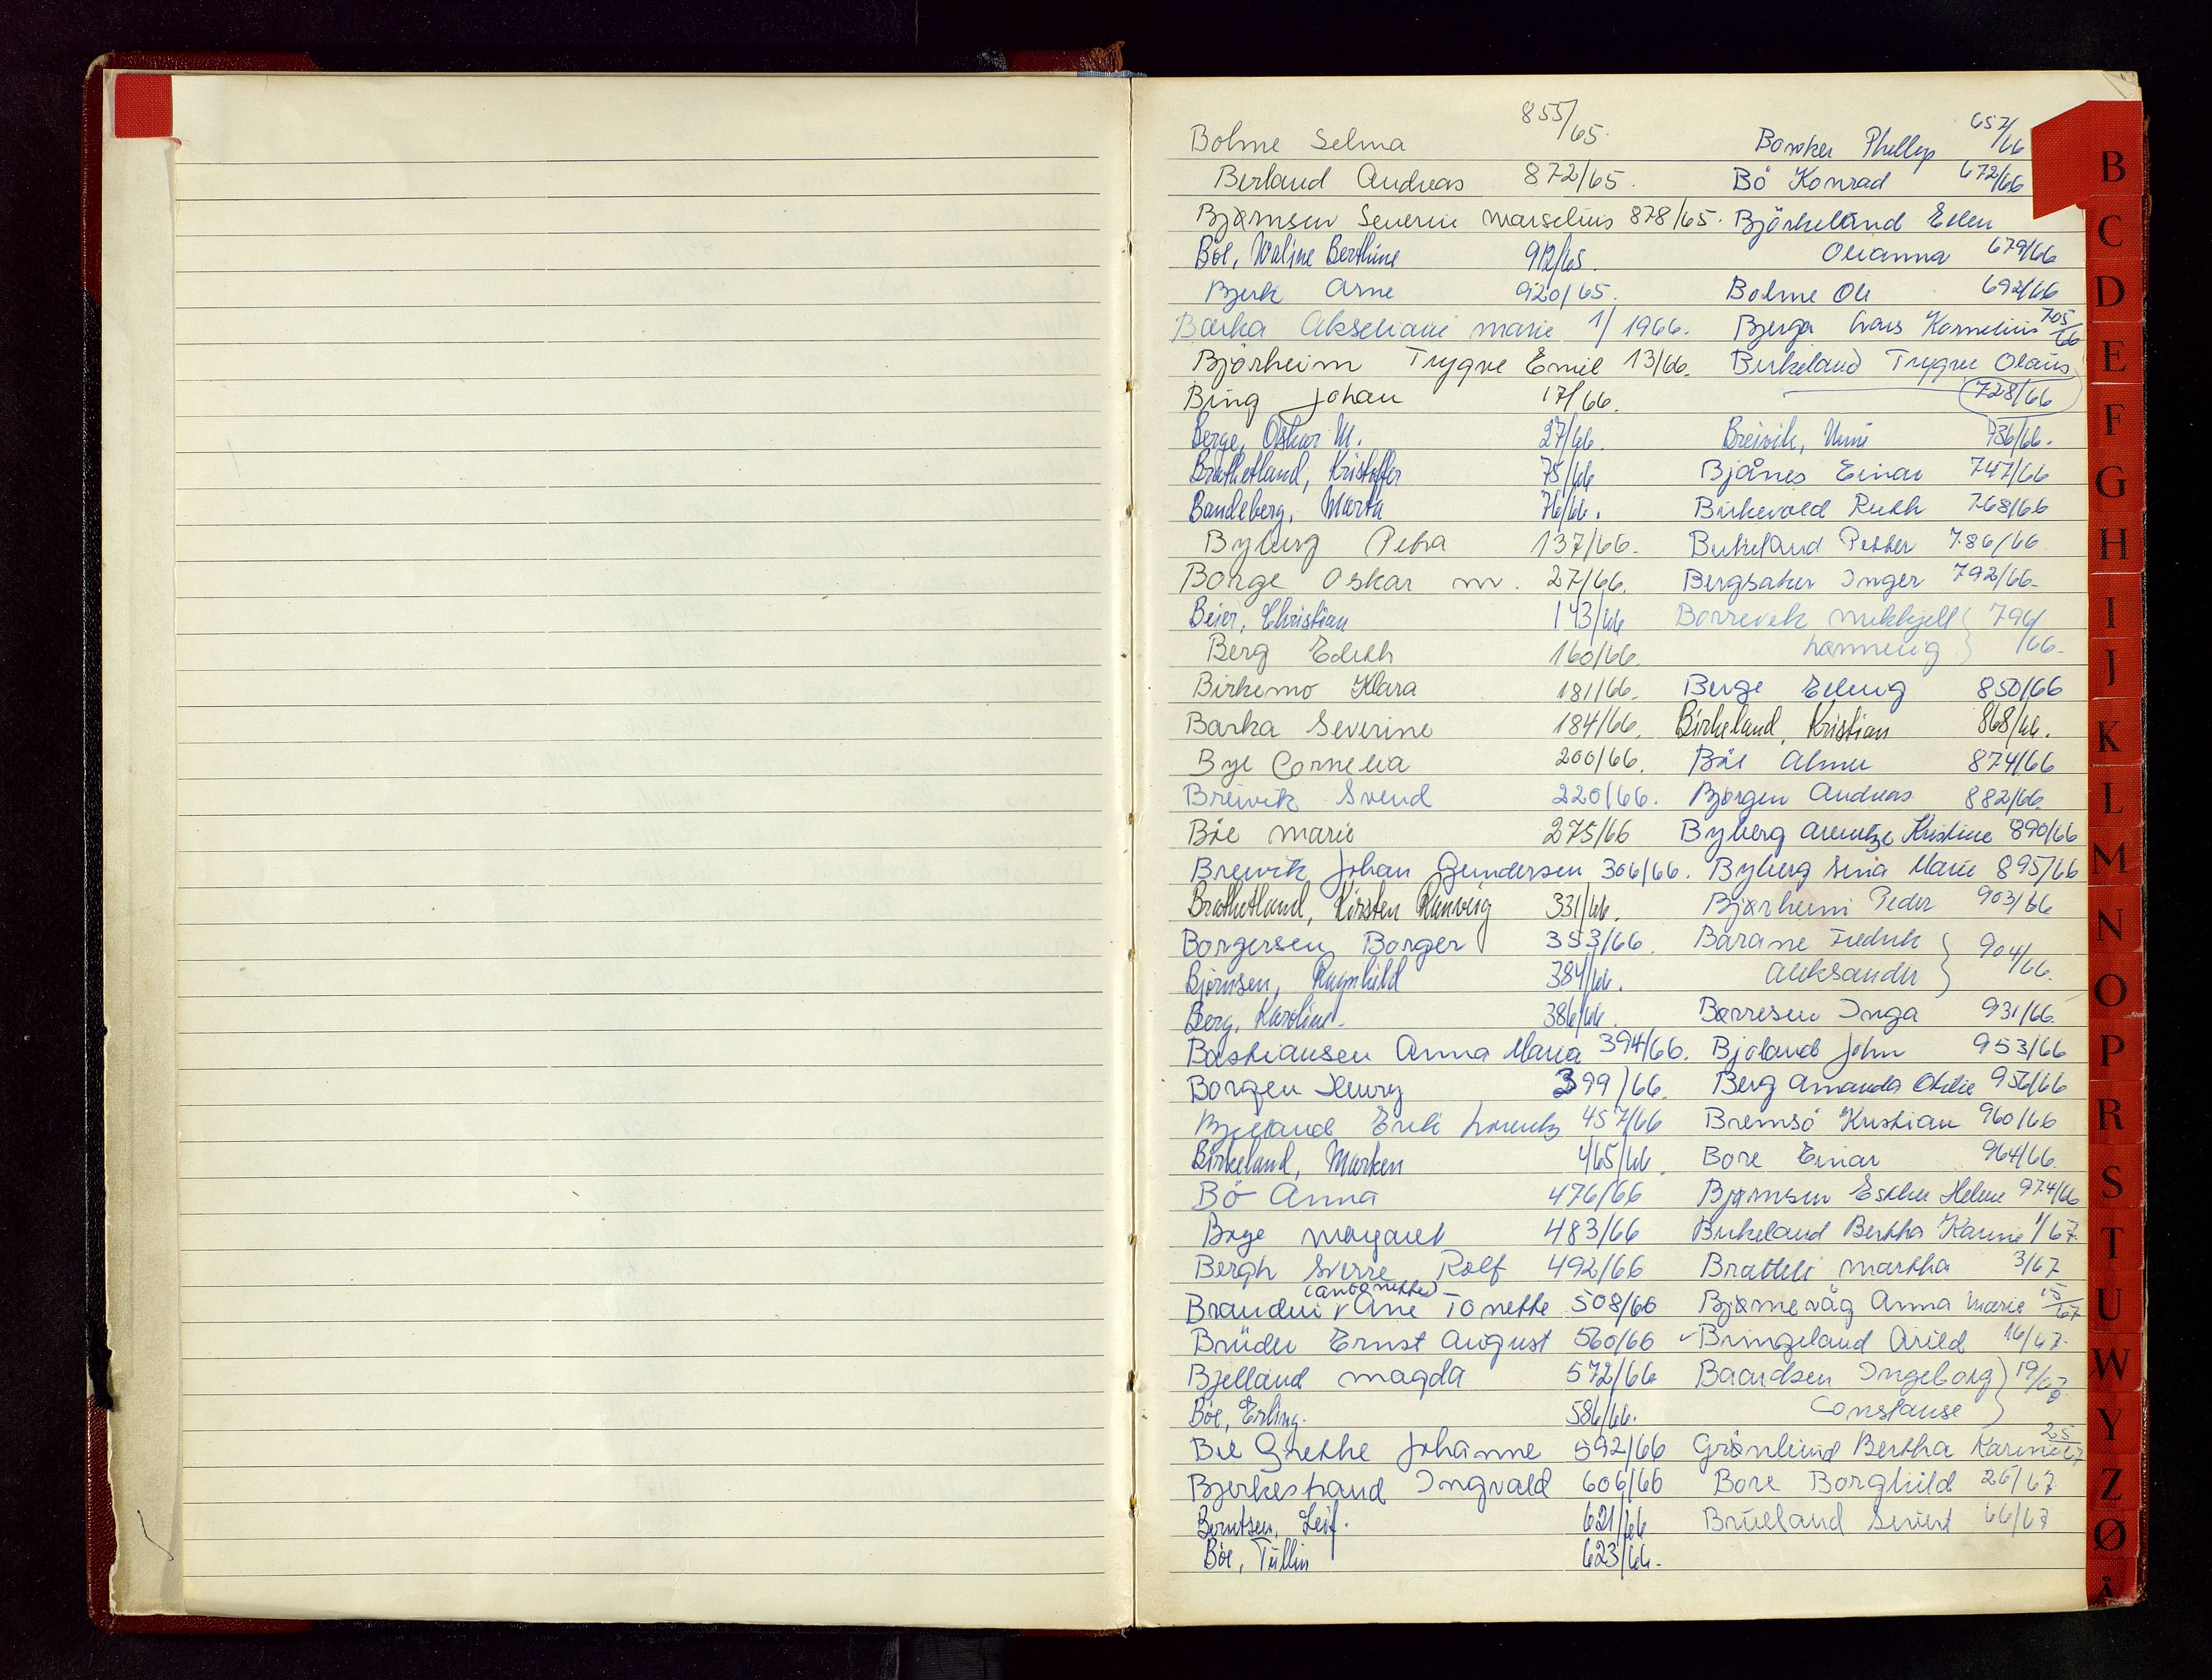 Bolme Selma 855/65.
Berland Andreas 872/65.
Bjørnsen Severin Marselius 878/65.
Böe, Valine Berthine 912/65.
Bjerk Arne 920/65.
Barka Akseliane Marie 1/1966.
Björheim Trygve Emil 13/66.
Bing Johan 17/66.
Berge, Oskar M. 27/66.
Brathetland, Kristoffer 75/66
Bandeberg, Marta 76/66.
Byberg Petra 137/66.
Borge Oskar M. 27/66.
Beier, Christian 143/66
Berg Edith 160/66.
Birkemo Klara 181/66.
Barka Severine 184/66.
Bye Cornelia 200/66.
Breivik Svend 220/66.
Böe Marie 275/66
Breivik Johan Gundersen 306/66.
Brathetland, Kirsten Ranveig 331/66.
Borgersen Borger 353/66.
Bjørnsen, Ragnhild 384/66.
Berg, Karoline. 386/66.
Bastiansen Anna Maria 394/66.
Borgen Henry 399/66.
Bjelland Erik Lorentz 457/66
Birkeland, Marken 465/66.
Bö Anna 476/66
Boge Margaret 483/66
Bergh Sverre Rolf 492/66
(Antonette)
Brandui v Ane Tonette 508/66
Brüder Ernst August 560/66
Bjelland Magda 572/66
Böe, Erling. 586/66.
Bie Grethe Johanne 592/66
Bjerkestrand Ingvald 606/66
Berntsen, Leif. 621/66
Böe, Tullin 623/66.
Bowker Phillip 657/66
Bö Konrad 672/66
Björkeland Ellen
Olianna 679/66
Bolme Ole 692/66
Bjerga Lars Kornelius 705/66
Birkeland Trygve Olaus
728/66
Breivik, Unni 736/66.
Bjånes Einar 747/66
Birkevold Ruth 768/66
Birkeland Petter 786/66
Bergsaker Inger 792/66.
Borrevik Mikkjell } 794/66.
Lanmeig
Berge Erling 850/66
Birkeland, Kristian 868/66.
Böe Almer 874/66
Bjorgen Andreas 882/66.
Byberg Arentze Kristine 890/66
Byberg Sina Marie 895/66
Bjørheim Peder 903/66
Barane Fredrik } 904/66.
Aleksander
Børresen Inga 931/66.
Bjoland John 953/66
Berg Amanda Otilie 956/66
Bremsö Kristian 960/66
Bore Einar 964/66.
Bjørnsen Esther Helene 974/66
Birkeland Bertha Karine 1/67.
Bratteli Martha 3/67
Bjørnevåg Anna Marie 15/67
Bringeland Arild 16/67.
Baardsen Ingeborg } 19/67
Constanse
Grönlund Bertha Karine 25/67
Bore Borghild 26/67
Brueland Sivert 66/67
B
C
D
E
F
G
H
I
J
K
L
M
N
O
P
R
S
T
U
W
Y
Z
Ø
Å